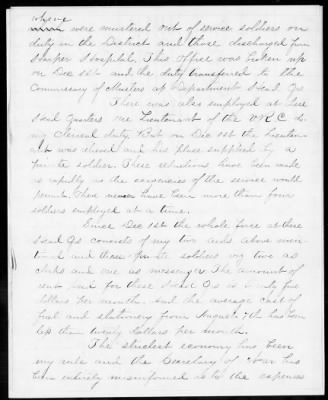 where
were mustered out of service soldiers on
duty in the District and those discharged from
Harper Hospital. This office was broken up
on Dec 1st and the duty transferred to the
Commissary of Musters at Department Head Qrs.
There was also employed at these
Head Quarters one Lieutenant of the V R C do-
ing Clerical duty, But on Dec 1st the Lieuten-
ant was relieved and his place supplied by a
private soldier. These reductions have been made
as rapidly as the exigencies of the service would
permit. There never have been more than four
soldiers employed at a time.
Since Dec 1st the whole force at these
Head Qrs consists of my two aids above men-
tioned and three private soldiers viz two as
clerks and one as messenger. The amount of
rent paid for these Head Qrs is twenty five
dollars per month. And the average cost of
fuel and stationery from August 7th has been
less than twenty dollars per month.
The strictest economy has been
my rule and the Secretary of War has
been entirely misinformed as to the expenses